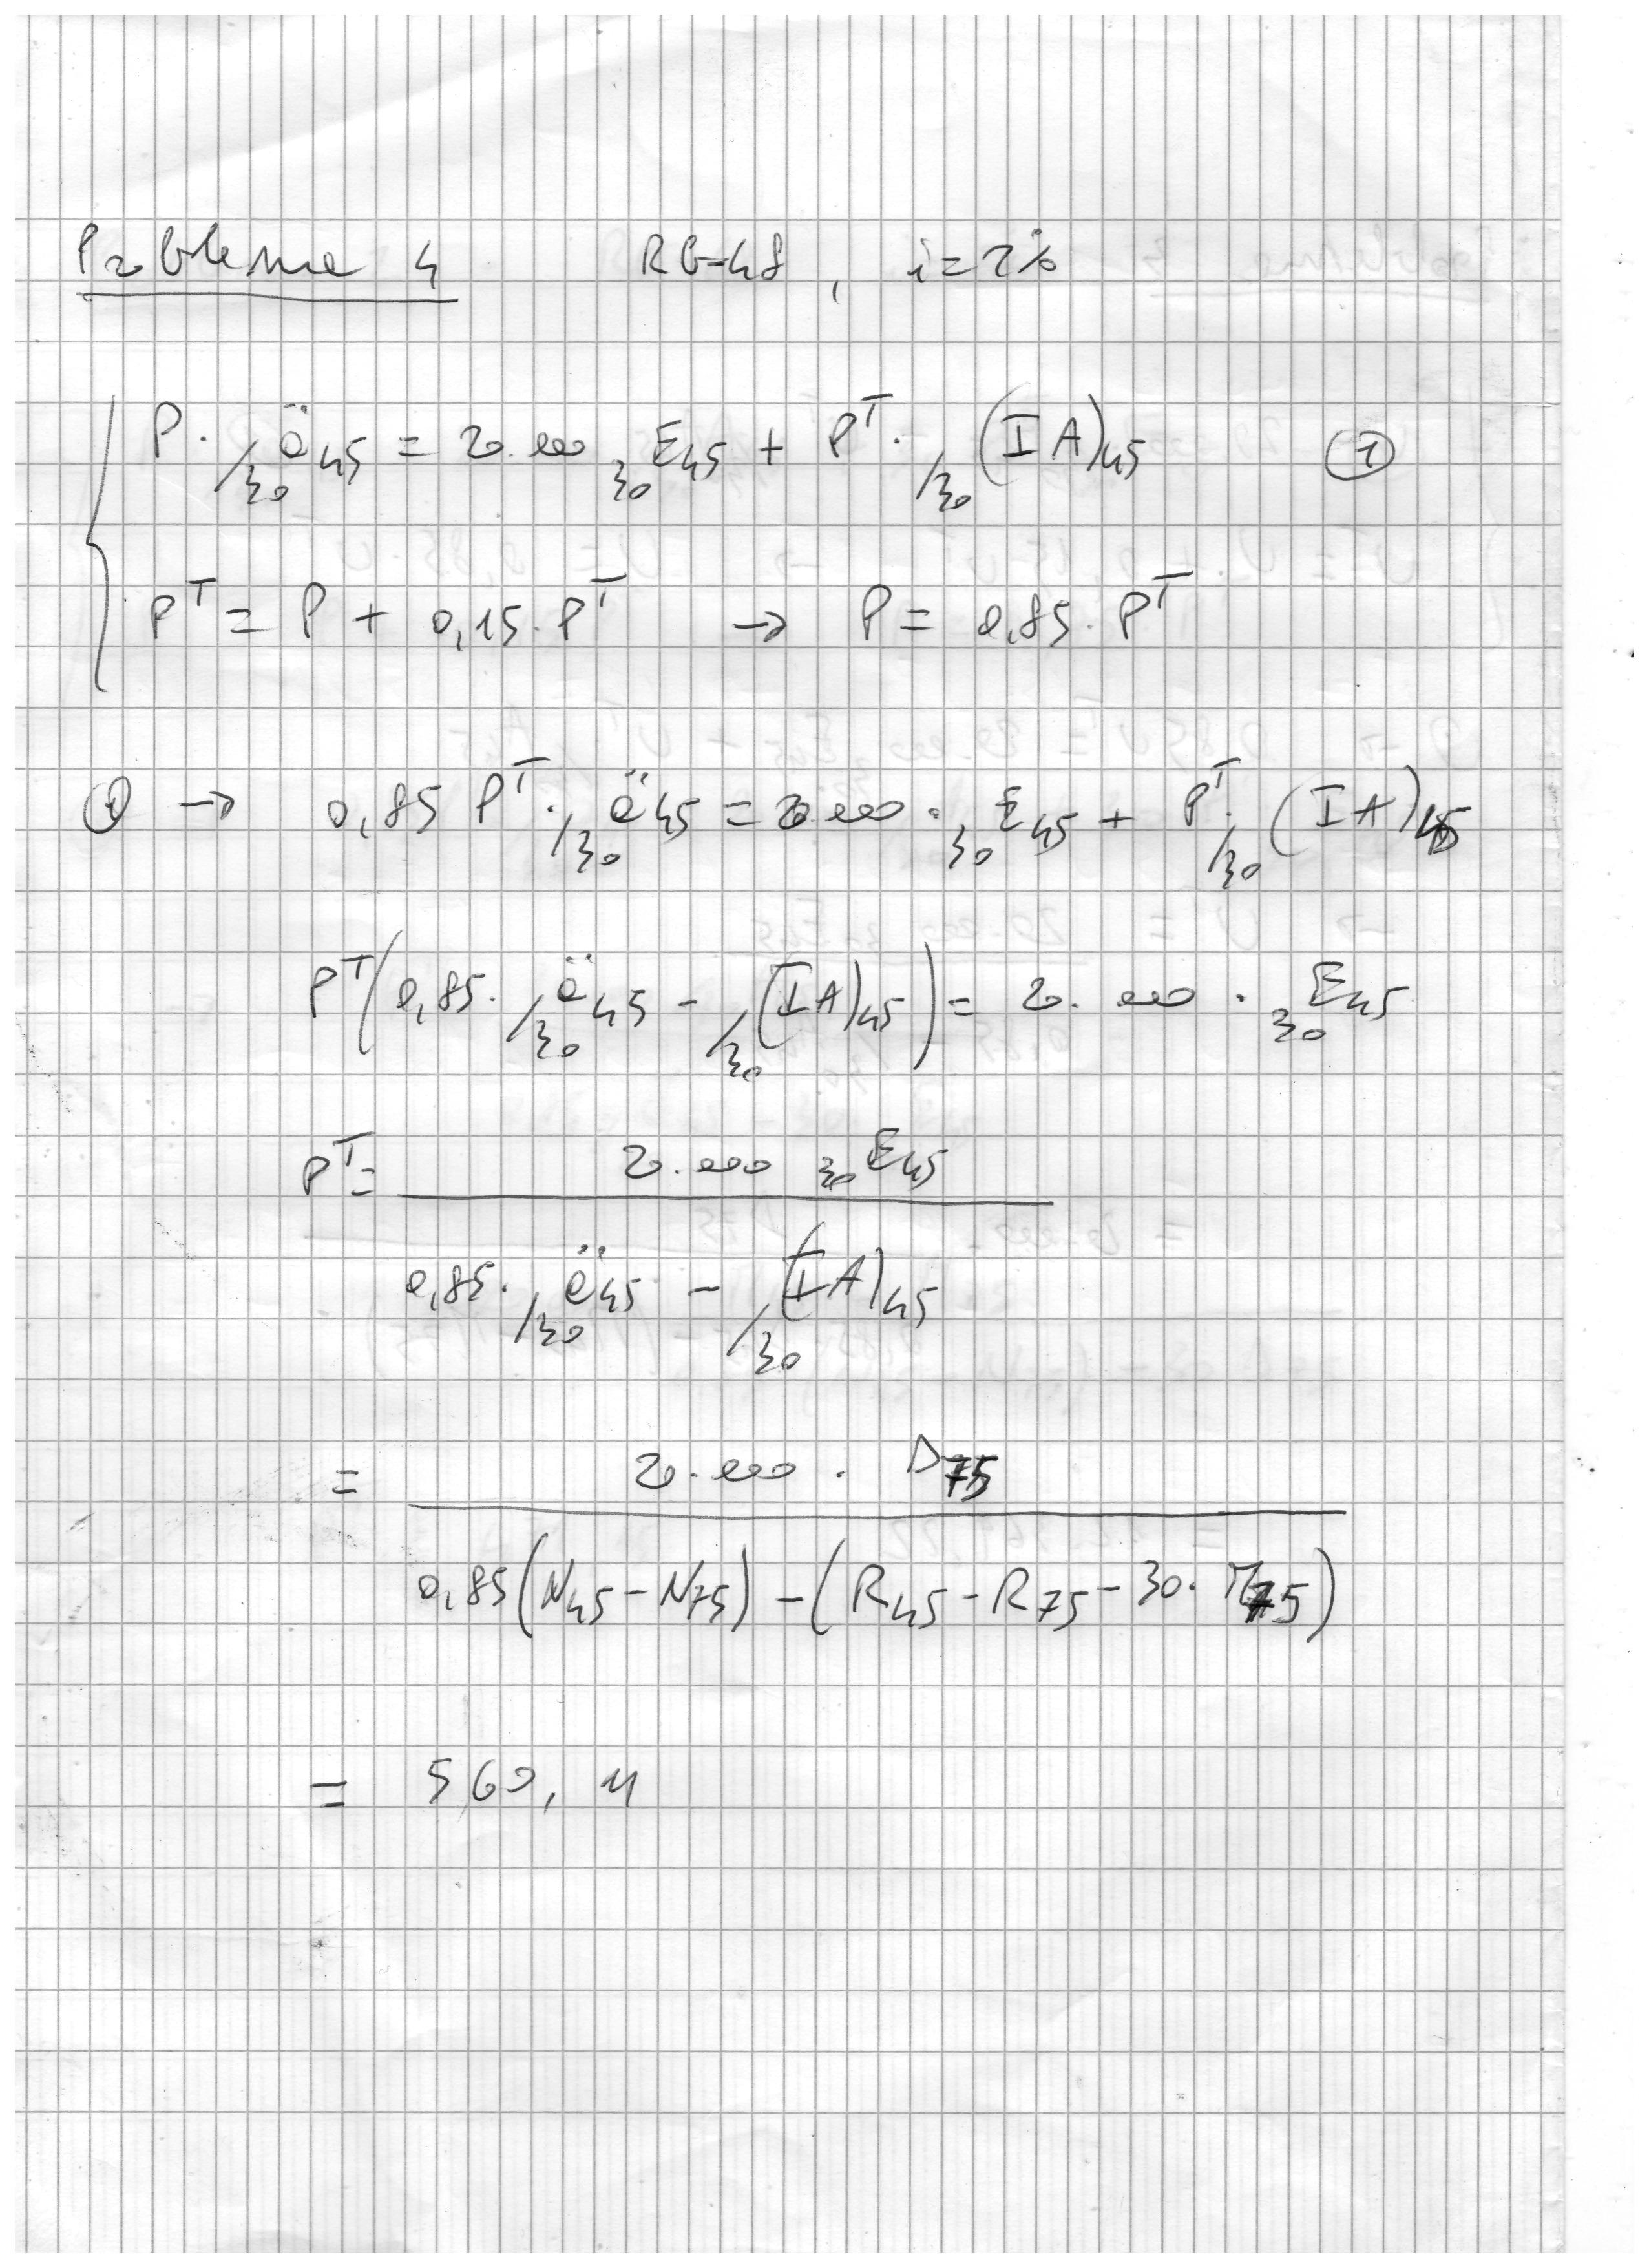 Probleme 4 RG-48, i=2%
P · /30 ä45 = 20.000 30E45 + P^T · /30 (IA)45 ①
P^T = P + 0,15 · P^T → P = 0,85 · P^T
① → 0,85 P^T · /30 ä45 = 20.000 · 30E45 + P^T · /30 (IA)45
P^T (0,85 · /30 ä45 - /30 (IA)45) = 20.000 · 30E45
P^T = 20.000 30E45
0,85 · /30 ä45 - /30 (IA)45
= 20.000 · D75
0,85 (N45 - N75) - (R45 - R75 - 30 · M75)
= 560,11